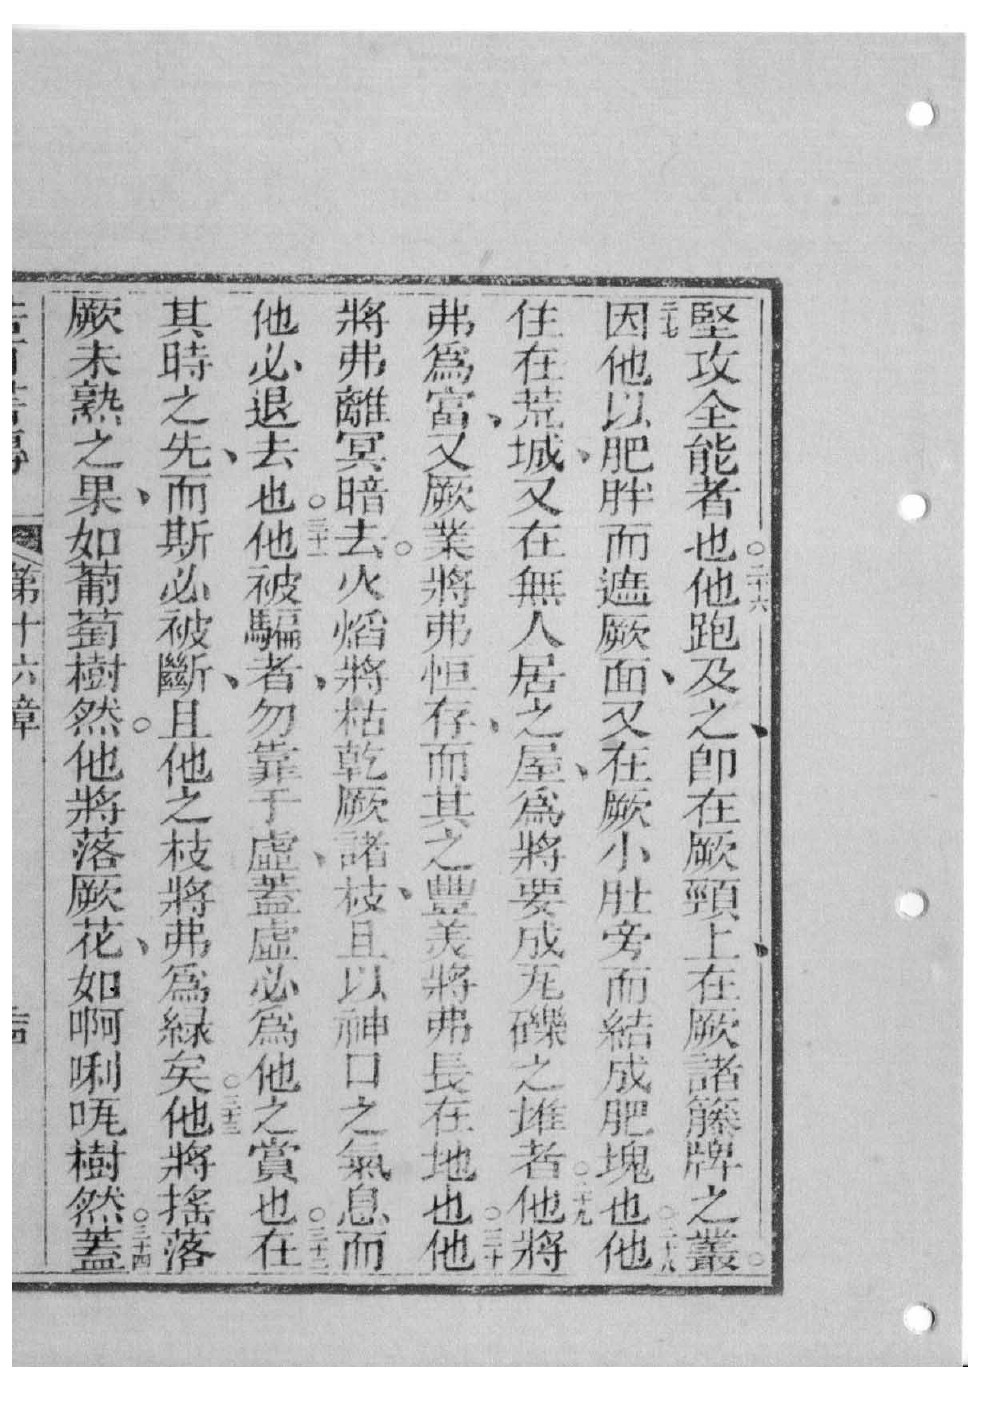 堅攻全能者也○二十六他跑及之、卽在厥頸上、在厥諸籐牌之叢○
二十七因他以肥胖而遮厥面、又在厥小肚旁而結成肥塊也○二十八他
住在荒城、又在無人居之屋、爲將要成瓦礫之堆者○二十九他將
弗爲富、又厥業將弗恒存、而其之豐美將弗長在地也○三十他
將弗離冥暗去○火焰將枯乾厥諸枝、且以神口之氣息而
他必退去也○三十一他被騙者、勿靠于虛、蓋虛必爲他之賞也○三十二在
其時之先、而斯必被斷、且他之枝將弗爲綠矣○三十三他將搖落
厥未熟之果、如葡萄樹然○他將落厥花、如啊唎𠯈樹然○三十四蓋
第十六章